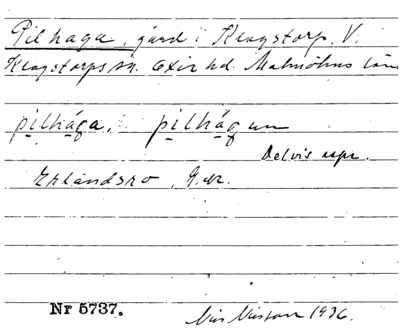 Pilhaga, gård i Klagstorp. V.
Klagstorps sn. Oxie hd. Malmöhus län
pilhága, pilhágen
Delvis upr.
Erlandsro, G.
Nr 5737.
Nils Nilsson 1936.